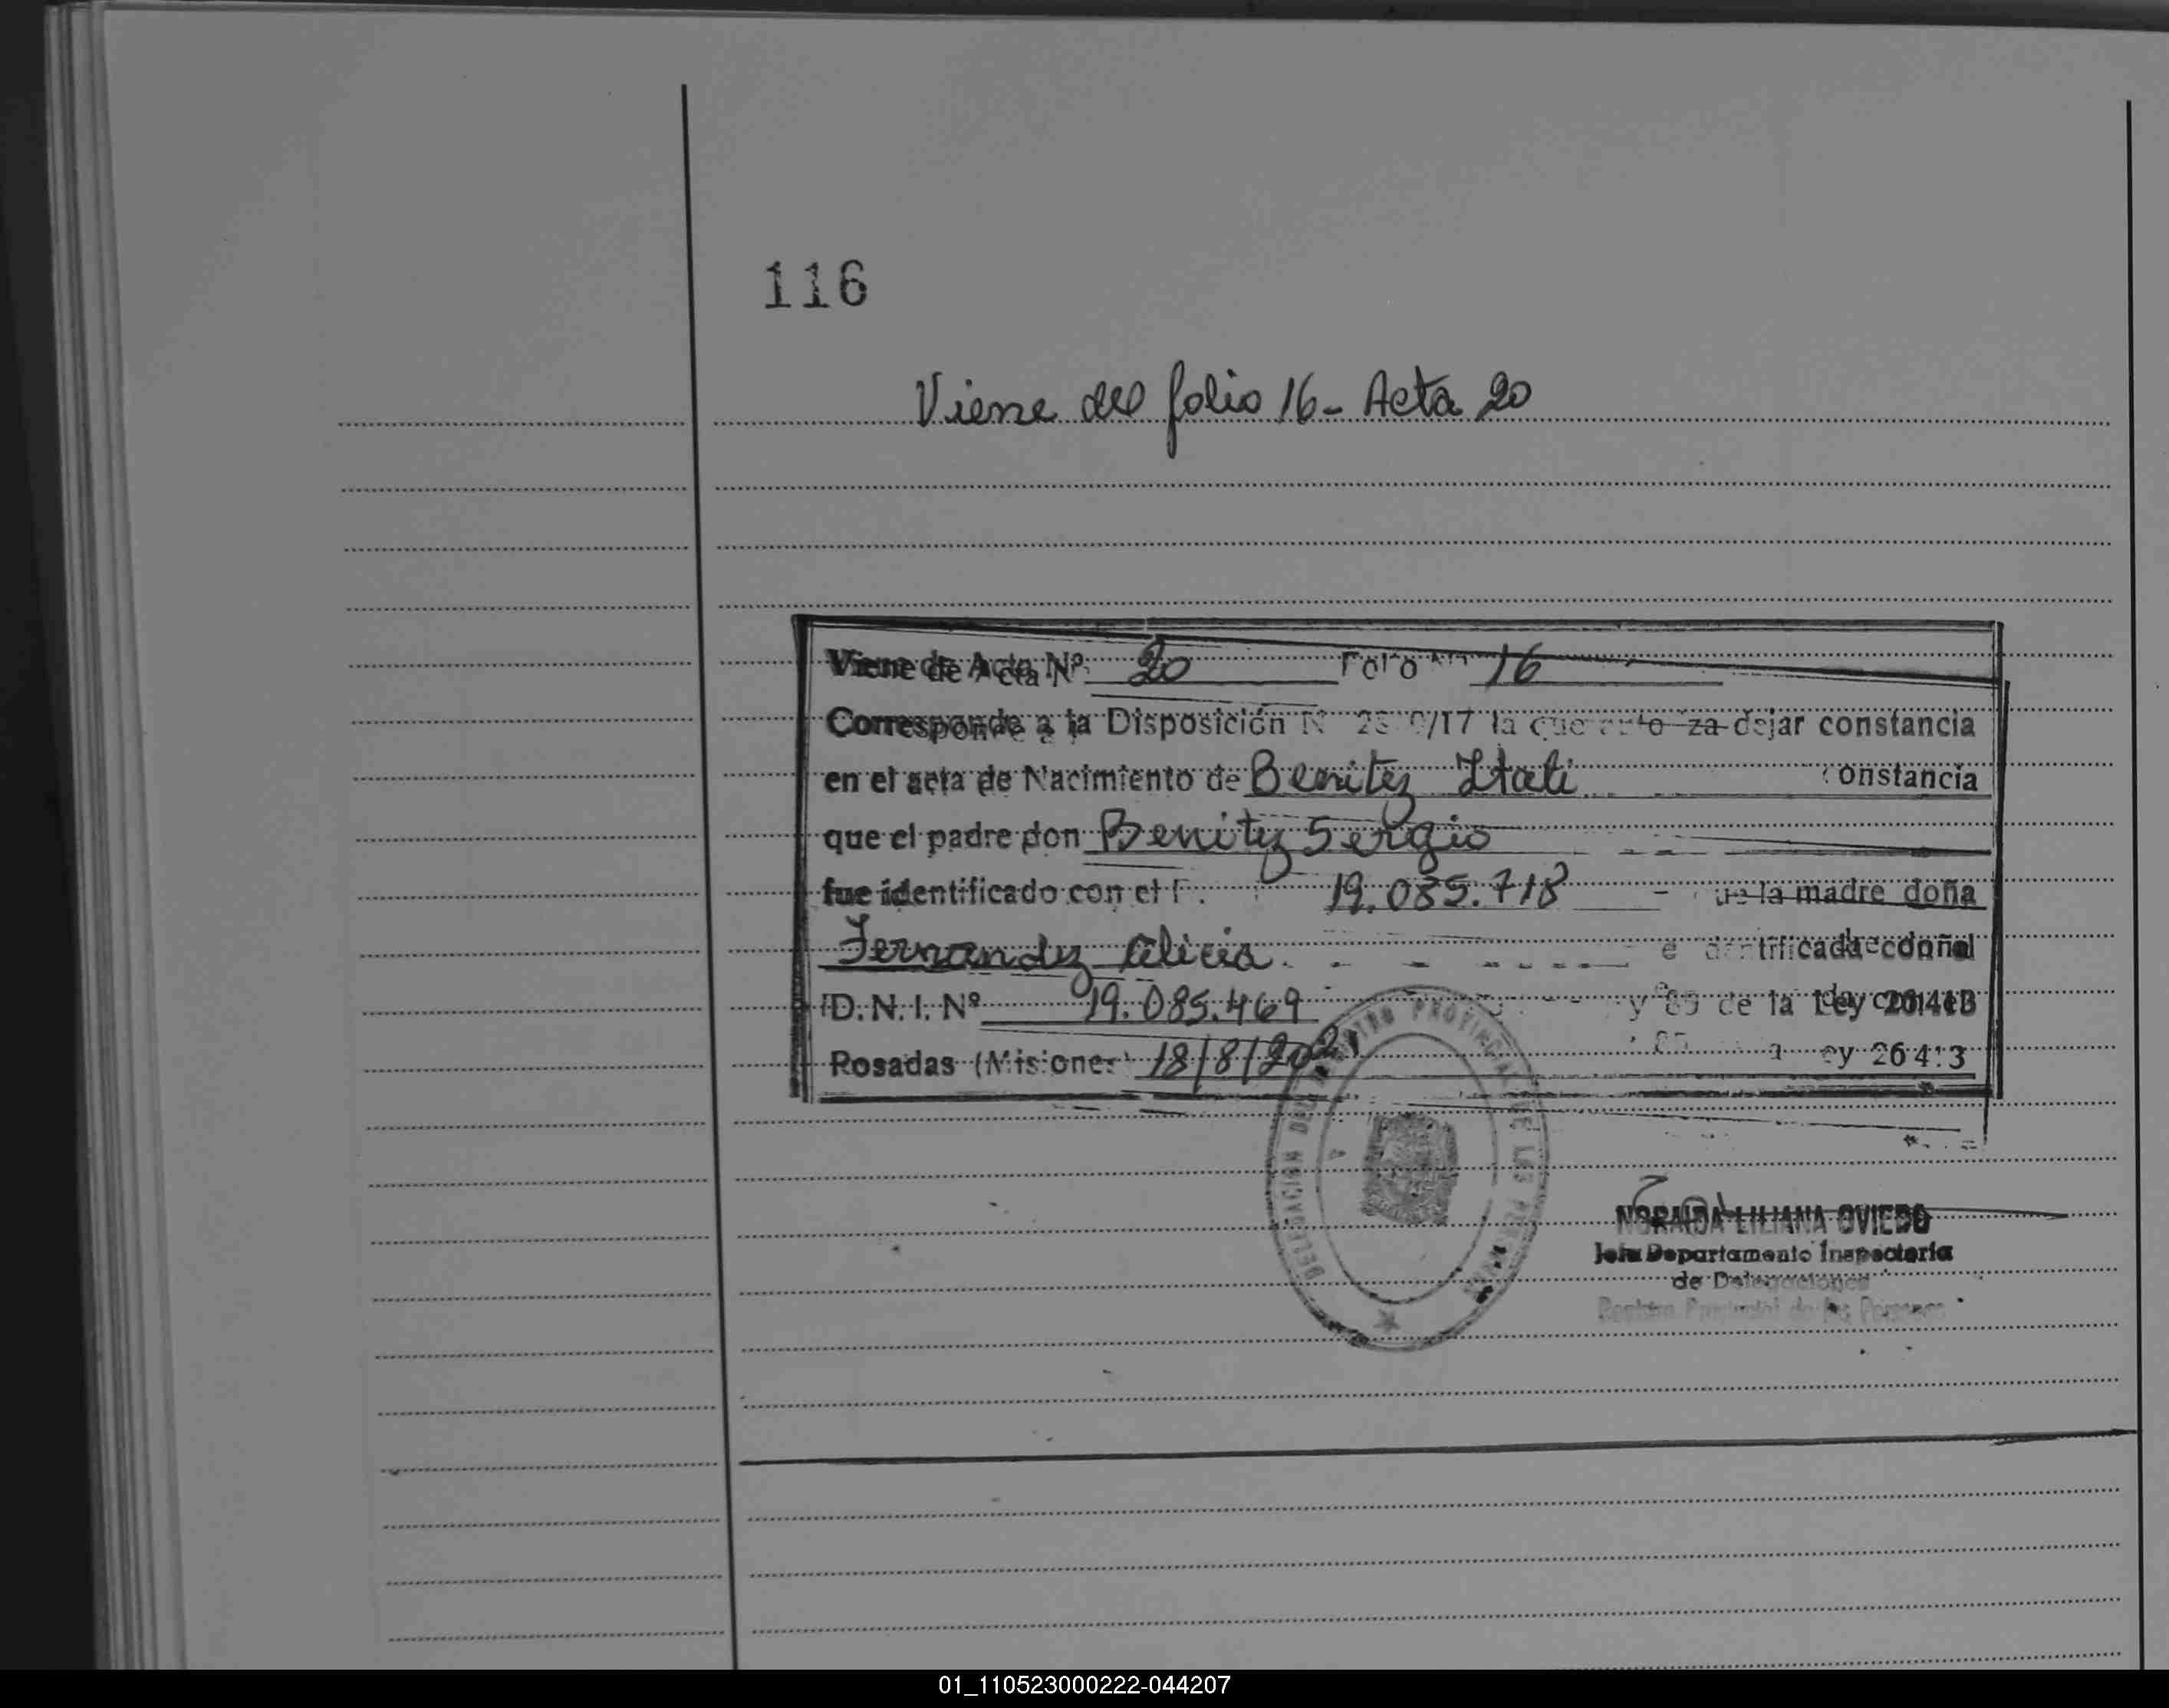 116
Viene del folio 16 - Acta 20
Viene de Acta Nº 20 Folio Nº 16
Corresponde a la Disposición N /17 la que autoriza dejar constancia
en el acta de Nacimiento de Benitez Itati constancia
que el padre don Benitez Sergio
fue identificado con el 19.085.718 que la madre doña
Fernandez Alicia.
D.N.I. Nº 19.085.469 y 85 de la Ley 26413
Posadas (Misiones) 18/8/2021 ey 26413
DELEGACION DEL REGISTRO PROVINCIAL DE LAS PERSONAS
NORAIDA LILIANA OVIEDO
Jefa Departamento Inspectoria
de Delegaciones
Registro Provincial de las Personas
01_110523000222-044207